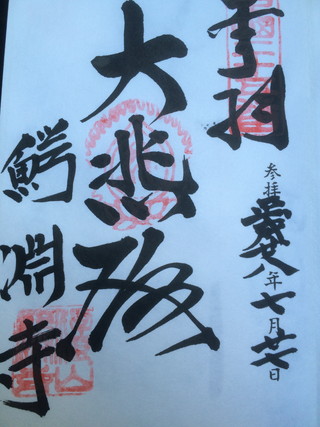 奉拝
参拝 平成廿八年七月廿七日
大悲殿
鰐淵寺